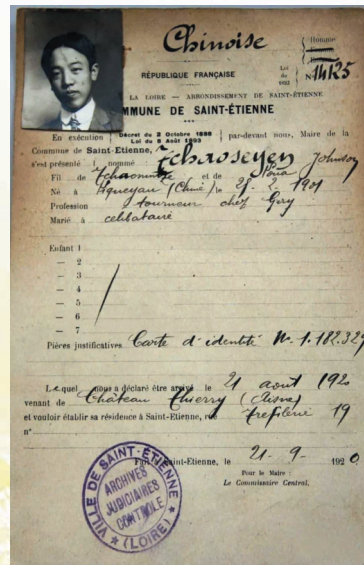 Chinoise
RÉPUBLIQUE FRANÇAISE
Loi
de
1893
Romane
N° 14125
LA LOIRE — ARRONDISSEMENT DE SAINT-ÉTIENNE
MMUNE DE SAINT-ÉTIENNE
En exécution Décret du 2 Octobre 1888 Loi du 8 Août 1893 par-devant nous, Maire de la
Commune de Saint-Étienne,
s'est présenté nommé Tchaoseyen Johnson
Fil de et de
Né à (Chine) le 2. 1901
Profession tourneur chez Giry
Marié à celibataire
Enfant 1
— 2
— 3
— 4
— 5
— 6
— 7
Pièces justificatives Carte d'identité N° 1.182.329
Lequel nous a déclaré être arrivé le 21 aout 1920
venant de Château Thierry (Aisne)
et vouloir établir sa résidence à Saint-Etienne, rue Trefilerie 19
n°
Saint-Etienne, le 21 - 9 - 1920
Pour le Maire :
Le Commissaire Central,
VILLE DE SAINT-ÉTIENNE
ARCHIVES
JUDICIAIRES
CONTROLE
(LOIRE)